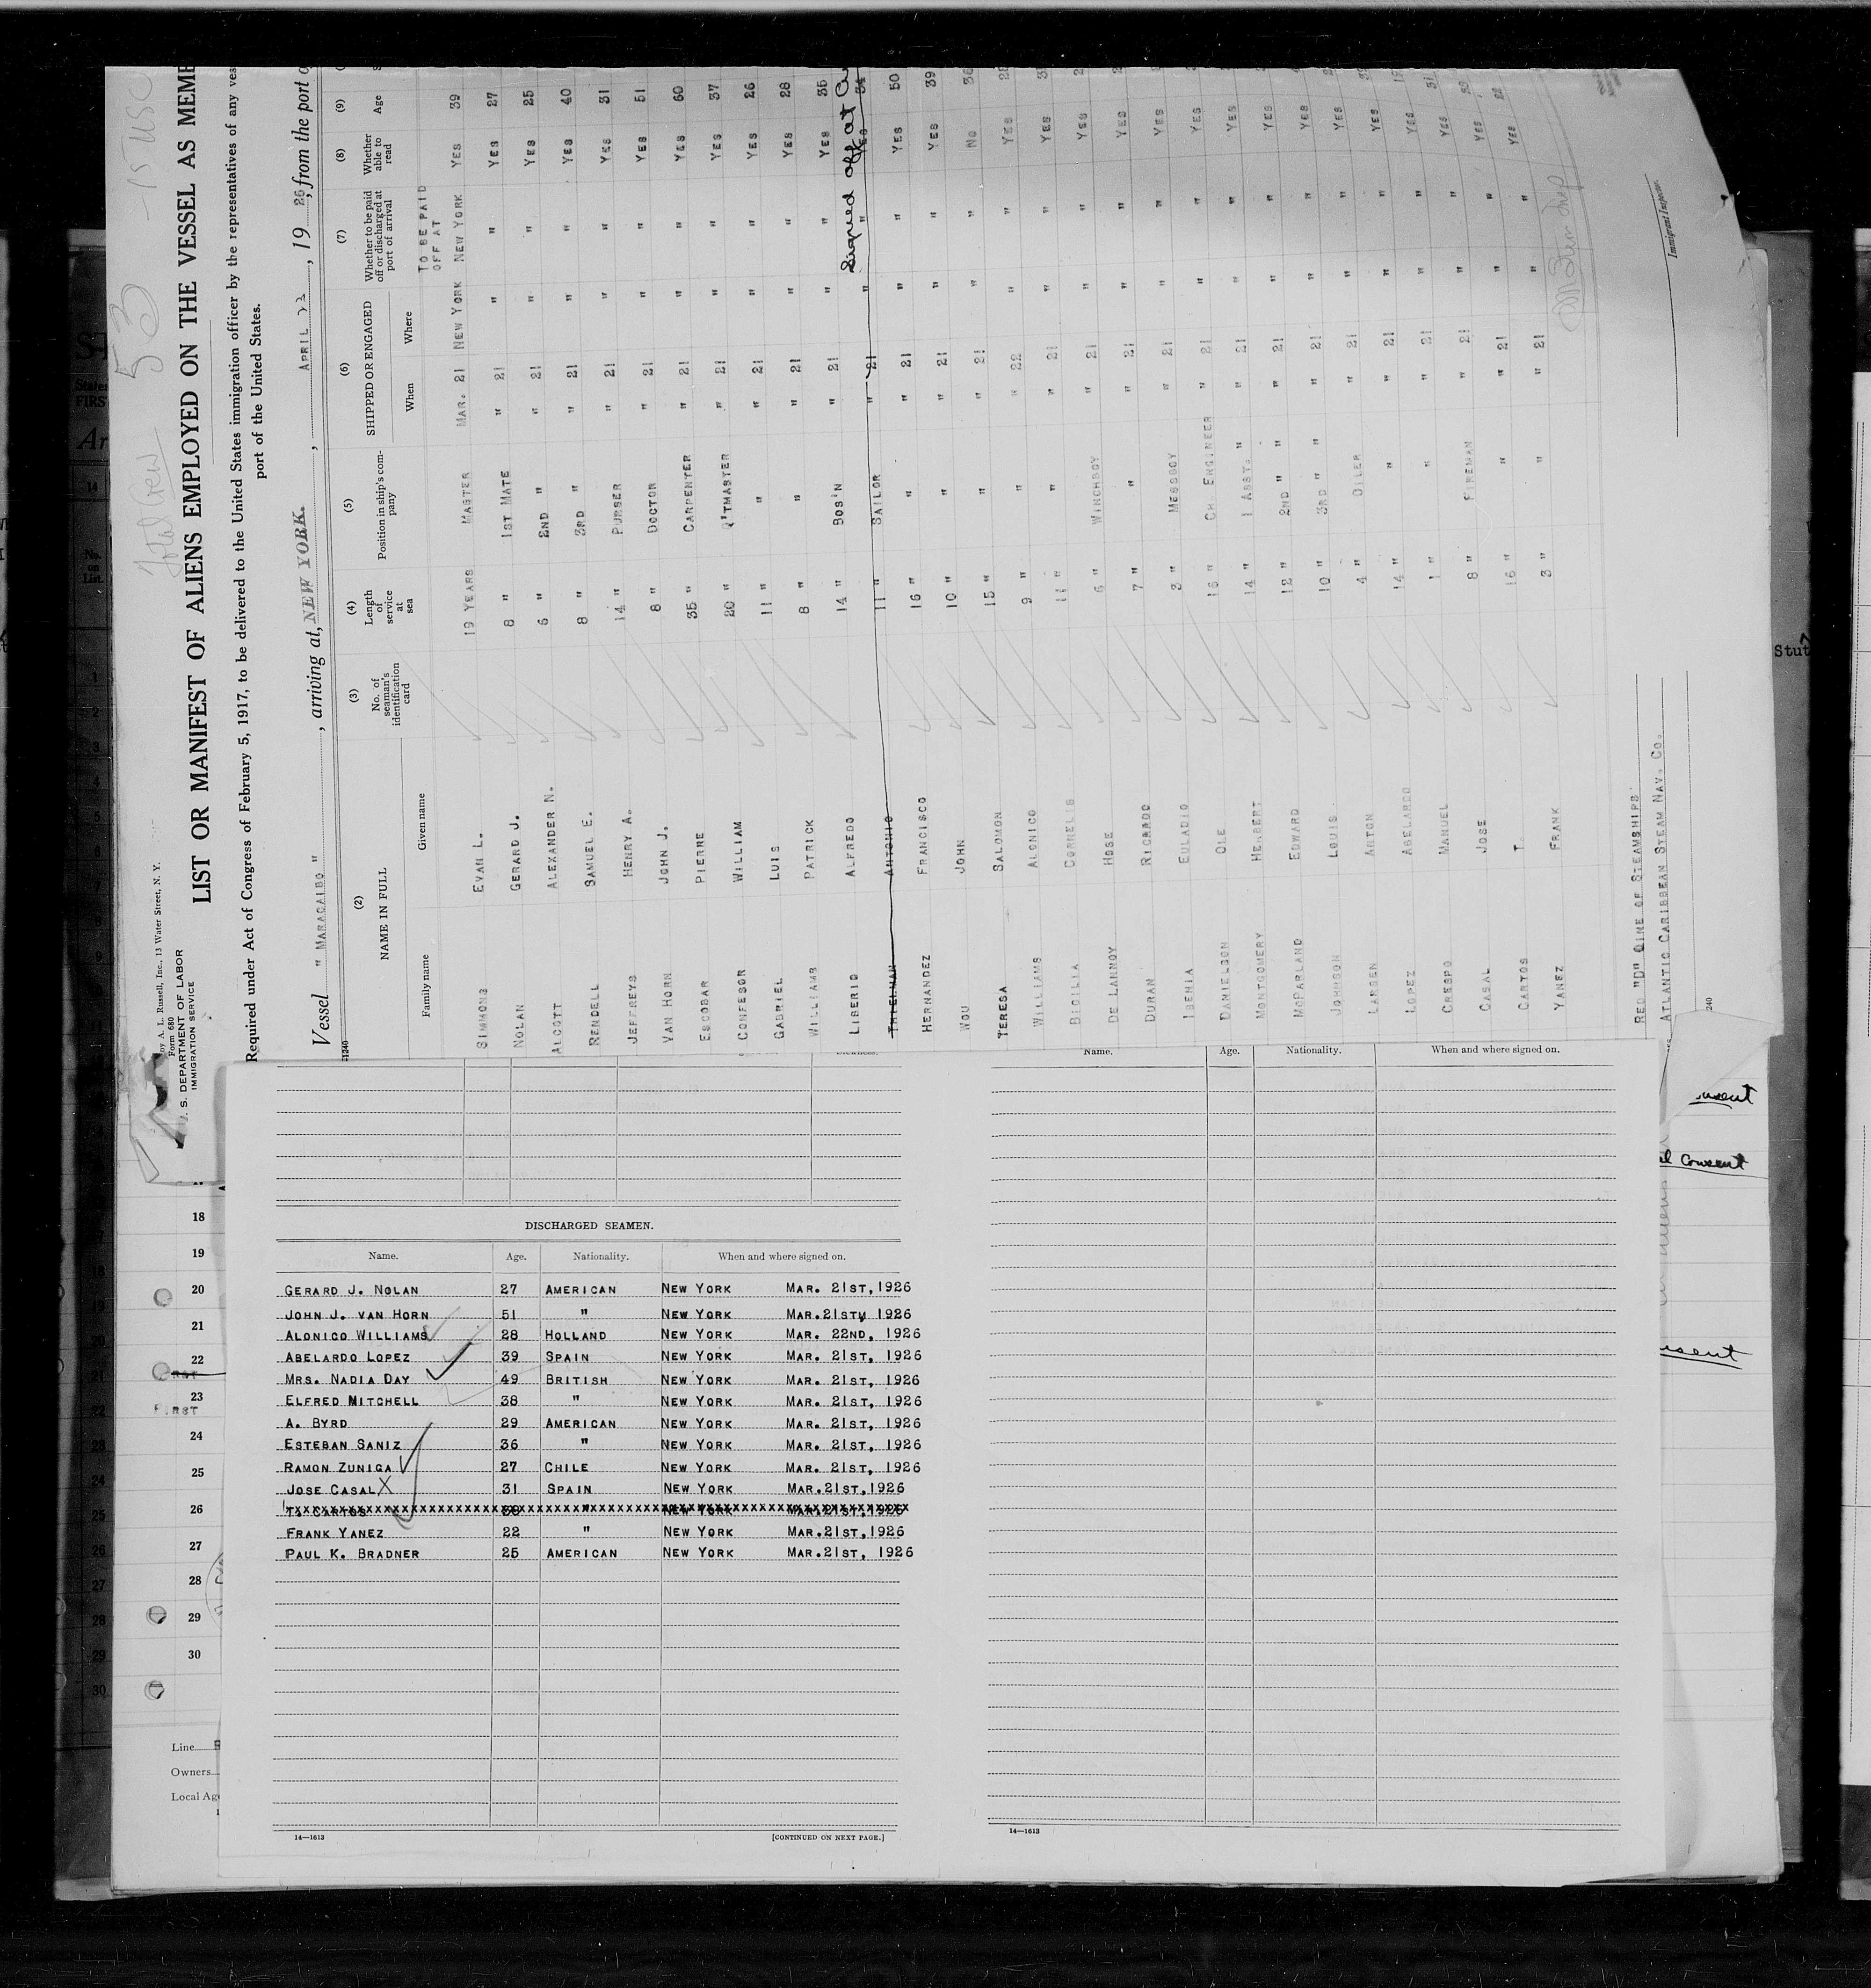 Total Crew 53 - 15 USC
by A. L. Russell, Inc., 13 Water Street, N. Y.
Form 680
U. S. DEPARTMENT OF LABOR
IMMIGRATION SERVICE
LIST OR MANIFEST OF ALIENS EMPLOYED ON THE VESSEL AS MEMB
Required under Act of Congress of February 5, 1917, to be delivered to the United States immigration officer by the representatives of any ves
port of the United States.
Vessel " MARACAIBO ", arriving at, NEW YORK., APRIL 22, 1926, from the port o
(2) (3) (4) (5) (6) (7) (8) (9)
NAME IN FULL No. of seaman's identification card Length of service at sea Position in ship's company SHIPPED OR ENGAGED Whether to be paid off or discharged at port of arrival Whether able to read Age
Family name Given name When Where
TO BE PAID OFF AT
SIMMONS EVAN L. 19 YEARS MASTER MAR. 21 NEW YORK NEW YORK YES 39
NOLAN GERARD J. 8 " 1ST MATE " 21 " " YES 27
ALCOTT ALEXANDER N. 6 " 2ND " " 21 " " YES 25
RENDELL SAMUEL E. 8 " 3RD " " 21 " " YES 40
JEFFREYS HENRY A. 14 " PURSER " 21 " " YES 31
VAN HORN JOHN J. 8 " DOCTOR " 21 " " YES 51
ESCOBAR PIERRE 35 " CARPENTER " 21 " " YES 60
CONFESOR WILLIAM 20 " Q'TMASTER " 21 " " YES 37
GABRIEL LUIS 11 " " " 21 " " YES 26
WILLIAMS PATRICK 8 " " " 21 " " YES 28
LIBERIO ALFREDO 14 " BOS'N " 21 " " YES 35
ANTONIO 11 " SAILOR " 21 " " YES 34
Signed off at
HERNANDEZ FRANCISCO 16 " " " 21 " " YES 50
WOU JOHN 10 " " " 21 " " YES 39
TERESA SALOMON 15 " " " 21 " " NO 36
WILLIAMS ALONICO 9 " " " 22 " " YES
BICILIA CORNELIS 11 " " " 21 " " YES
DE LANNOY HOSE 6 " WINCHBOY " 21 " " YES
DURAN RICARDO 7 " " " 21 " " YES
ISENIA EULADIO 3 " MESSBOY " 21 " " YES
DANIELSON OLE 16 " CH. ENGINEER " 21 " " YES
MONTGOMERY HERBERT 14 " 1 ASST. " " 21 " " YES
MCPARLAND EDWARD 12 " 2ND " " " 21 " " YES
JOHNSON LOUIS 10 " 3RD " " " 21 " " YES
LARSEN ANTON 4 " OILER " 21 " " YES
LOPEZ ABELARDO 14 " " " 21 " " YES
CRESPO MANUEL 1 " " " 21 " " YES
CASAL JOSE 8 " FIREMAN " 21 " " YES
CARTOS T. 16 " " " 21 " " YES
YANEZ FRANK 3 " " " 21 " " YES
Immigrant Inspector.
RED "D" LINE OF STEAMSHIPS
ATLANTIC CARIBBEAN STEAM NAV. CO.
Name. Age. Nationality. When and where signed on.
DISCHARGED SEAMEN.
Name. Age. Nationality. When and where signed on.
GERARD J. NOLAN 27 AMERICAN NEW YORK MAR. 21ST, 1926
JOHN J. VAN HORN 51 " NEW YORK MAR. 21ST, 1926
ALONICO WILLIAMS 28 HOLLAND NEW YORK MAR. 22ND, 1926
ABELARDO LOPEZ 39 SPAIN NEW YORK MAR. 21ST, 1926
MRS. NADIA DAY 49 BRITISH NEW YORK MAR. 21ST, 1926
ELFRED MITCHELL 38 " NEW YORK MAR. 21ST, 1926
A. BYRD 29 AMERICAN NEW YORK MAR. 21ST, 1926
ESTEBAN SANIZ 36 " NEW YORK MAR. 21ST, 1926
RAMON ZUNIGA 27 CHILE NEW YORK MAR. 21ST, 1926
JOSE CASAL X 31 SPAIN NEW YORK MAR. 21ST, 1926
T. CARTOS 30 " NEW YORK MAR. 21ST, 1926
FRANK YANEZ 22 " NEW YORK MAR. 21ST, 1926
PAUL K. BRADNER 25 AMERICAN NEW YORK MAR. 21ST, 1926
14—1613 [CONTINUED ON NEXT PAGE.]
14—1613
18
19
20
21
22
23
24
25
26
27
28
29
30
Line
Owners
Local Ag
FIRST
Consent